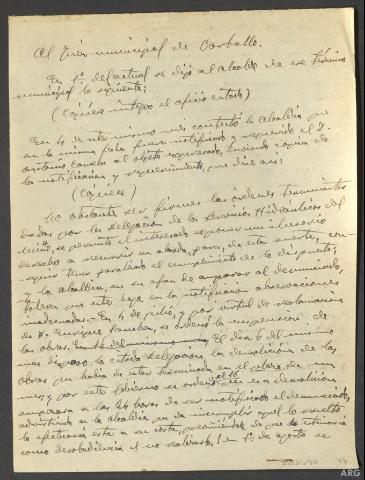 Al Juez municipal de Carballo.
En 1º del actual se dijo al alcalde de ese término
municipal lo siguiente:
(Cópiese íntegro el oficio citado)
En 4 de este mismo mes contestó la Alcaldía que
en la misma fecha fuera notificado y requerido el D.
Antonio al objeto expresado, enviando copia de
la notificación y requerimiento, que dice así:
(Cópiese)
No obstante ser firmes las órdenes terminantes
dadas por la Delegación de los Servicios Hidráulicos del
Miño, se permite el interesado exponer un ilusorio
derecho a recurrir en alzada, para, de esta suerte, con-
seguir tener paralizado el cumplimiento de lo dispuesto;
y la alcaldía, en su afán de amparar al denunciado,
tolera que este haga en la notificación observaciones
inadecuadas. En 4 de julio, y por virtud de reclamación
de D. Enrique, se ordenó la suspensión de
las obras. El día 6 del mismo
mes dispuso la citada Delegación, la demolición de las
obras que había de estar terminada en el plazo de un
mes; y por este Gobierno se ordenó que esa demolición
empezara a las 24 horas de ser notificado el denunciado,
advirtiendo a la alcaldía que de incumplir aquel lo resuelto
lo efectuaría esta a su costa,
como desobediencia el no realizarlo. En 1º de agosto se
ARG